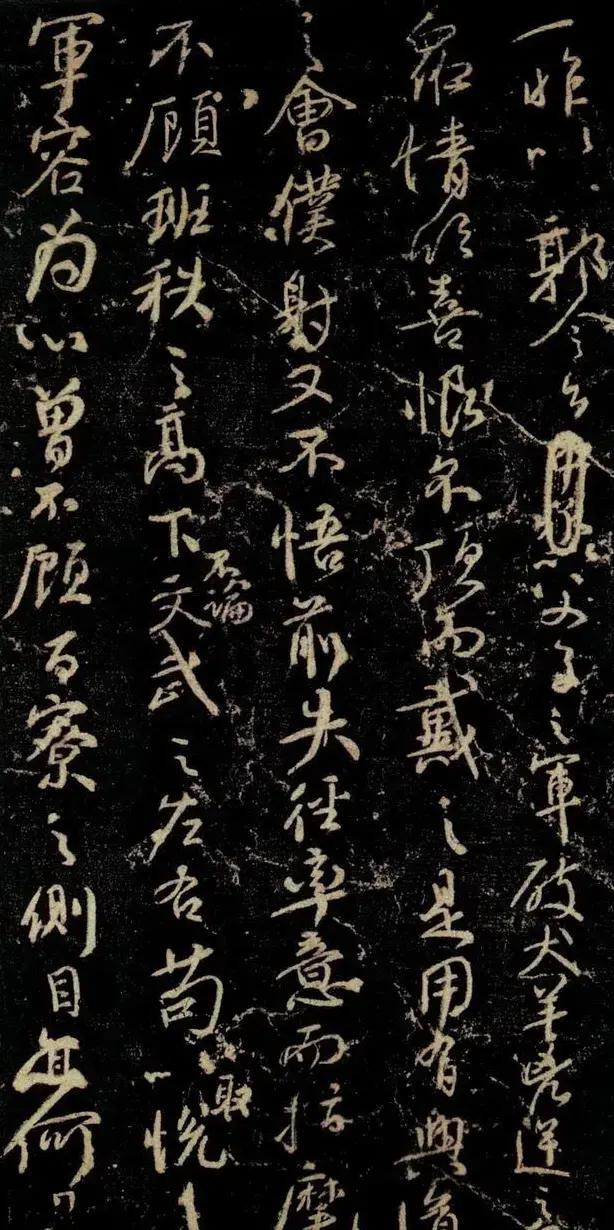 一昨以郭令公父子之軍破犬羊兇逆之
眾情欣喜恨不頂而戴之是用有興道
之會僕射又不悟前失徑率意而指麾
不顧班秩之高下不論文武之左右苟以取悅
軍容為心曾不顧百寮之側目亦何